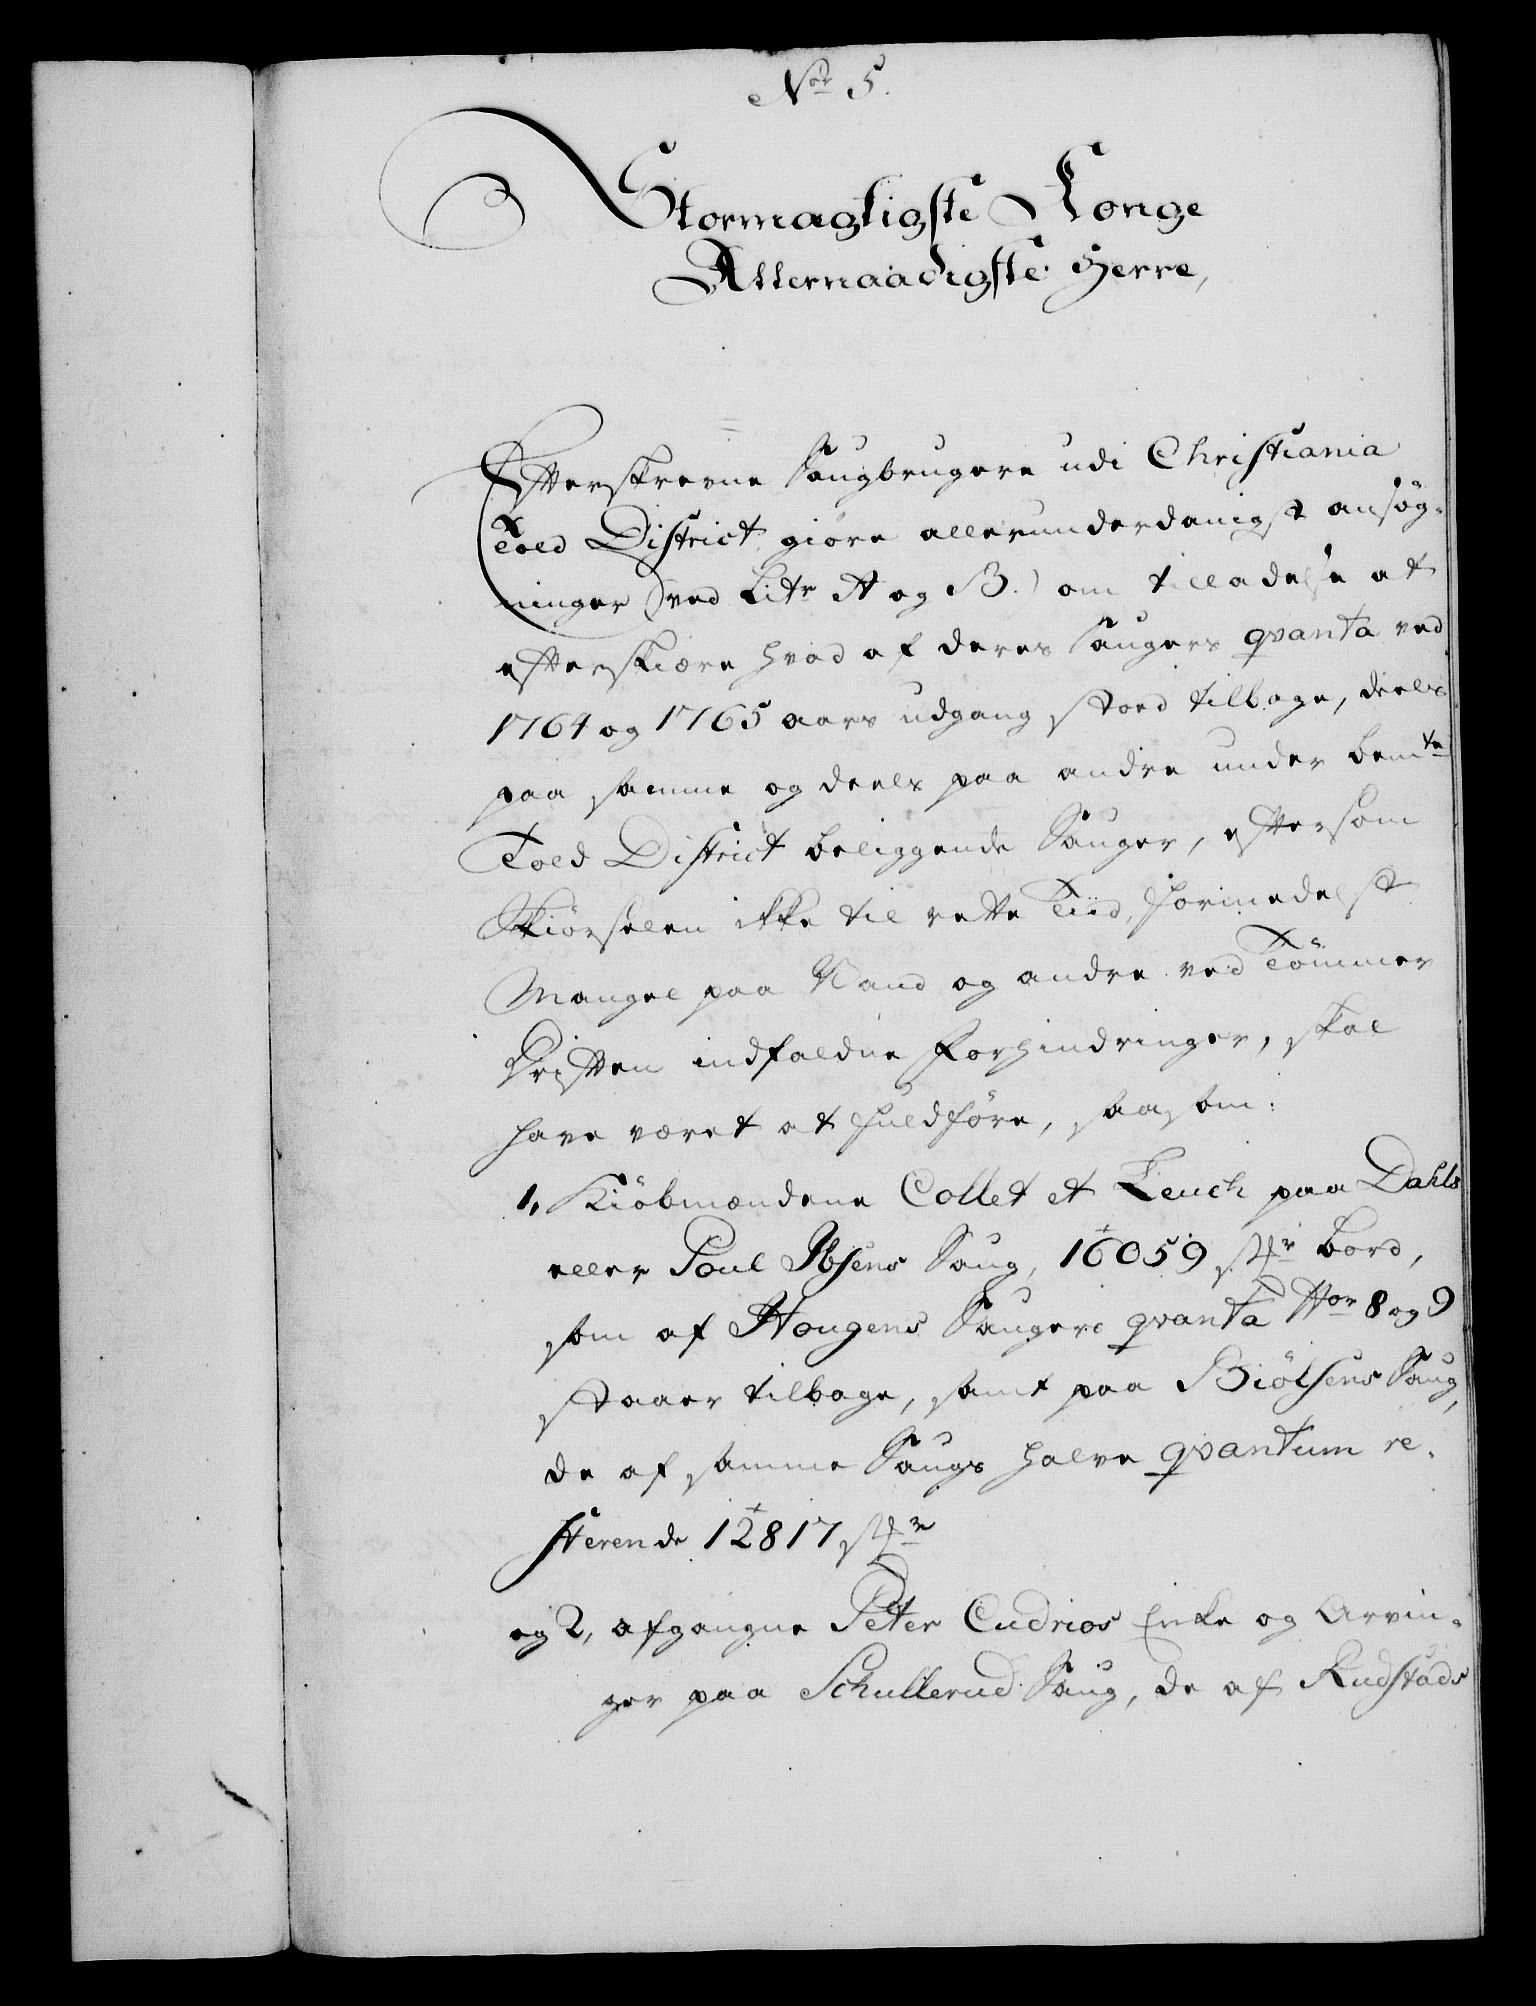 Nor 5.
Stormægtigste Konge
Allernaadigste Herre,
Efterskrevne Saugbrugere udi Christiania
Told District giöre allerunderdanigst ansög-
ninger (ved Litr A og B.) om tilladelse at
efterskiære hvad af deres Saugers qvanta ved
1764 og 1765 aars udgang stoed tilbage, deels
paa samme og deels paa andre under bemte
Told District beliggende Sauger, eftersom
Skiörselen ikke til rette Tiid, formedelst
Mangel paa Vand og andre ved Tömmer
Driften indfaldne Forhindringer, skal
have været at fuldföre, saasom:
1, Kiöbmændene Collet et Leuch paa Dahls
eller Poul Ibsens Saug, 16059 stkr bord,
som af Hougens Saugers qvanta Nor 8 og 9
staaer tilbage, samt paa Biölsens Saug,
de af samme Saugs halve qvantum re-
sterende 12817 stkr
og 2, afgangne Peter Cudrios Enke og Arvin-
ger paa Schullerud Saug, de af Rudstads